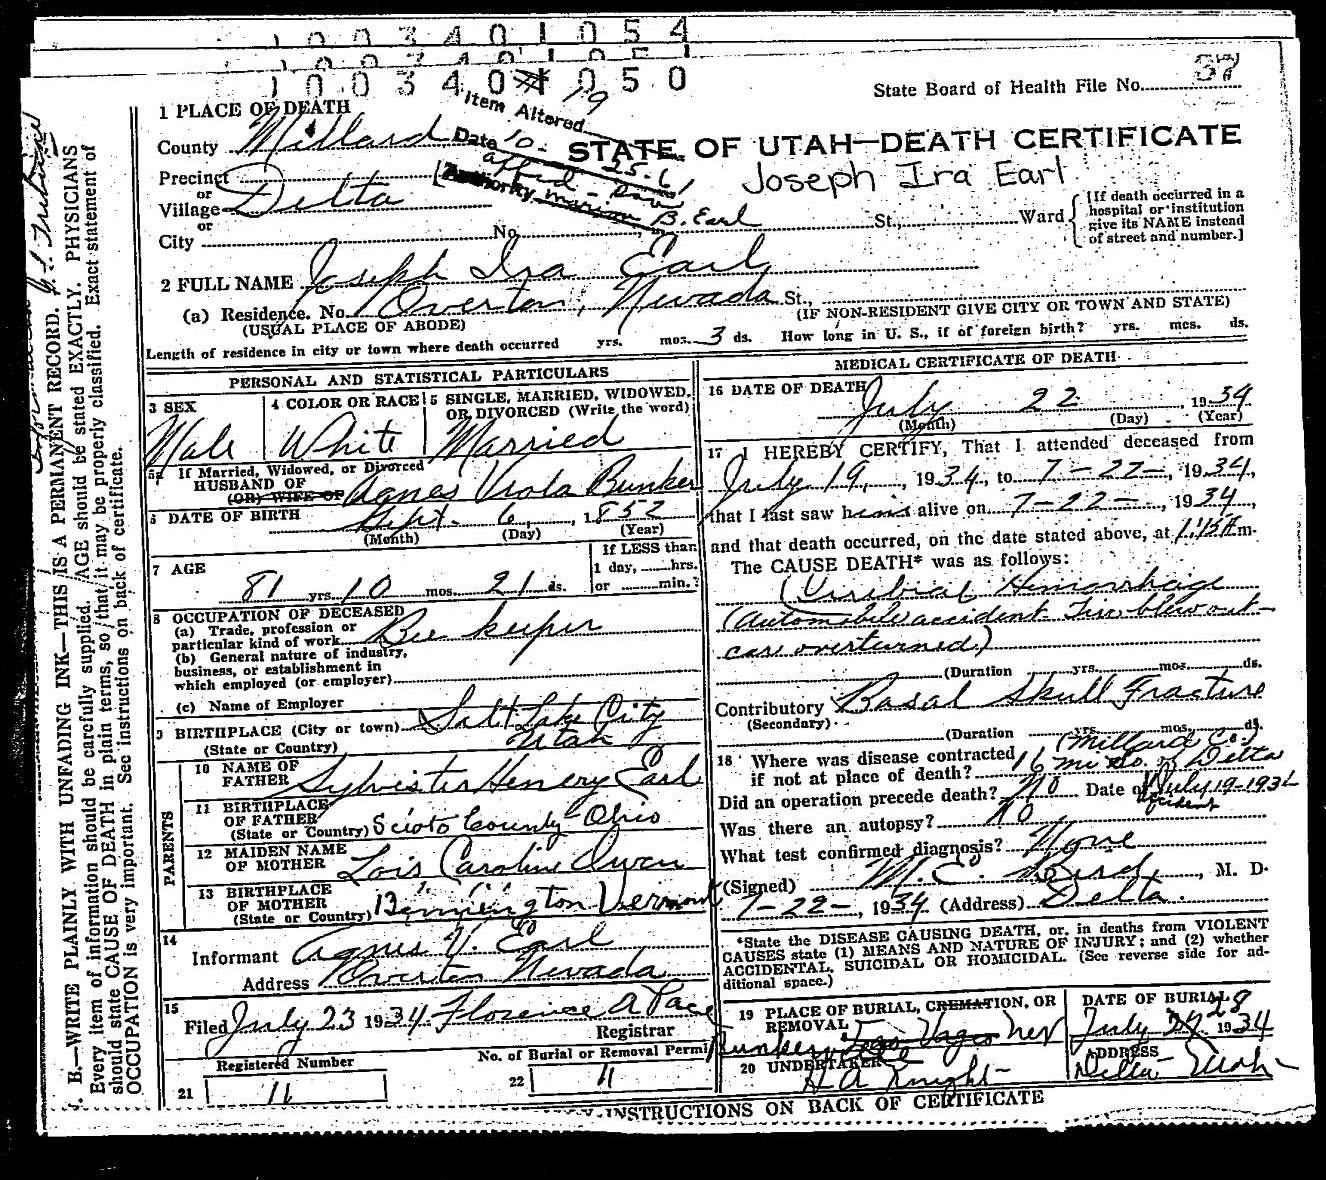 1003401054
1003401051
10034019050
State Board of Health File No.
1 PLACE OF DEATH
Item Altered 19
County Millard
Date 10-25-61
STATE OF UTAH—DEATH CERTIFICATE
Precinct
Joseph Ira Earl
or
Village Delta
Authority Marion B. Earl
St., Ward
[If death occurred in a
hospital or institution
give its NAME instead
of street and number.]
or
City No.
2 FULL NAME Joseph Ira Earl
(a) Residence. No. Overton, Nevada St.,
(USUAL PLACE OF ABODE)
(IF NON-RESIDENT GIVE CITY OR TOWN AND STATE)
Length of residence in city or town where death occurred yrs. mos. 3 ds. How long in U. S., if of foreign birth? yrs. mos. ds.
PERSONAL AND STATISTICAL PARTICULARS
3 SEX
Male
4 COLOR OR RACE
White
5 SINGLE, MARRIED, WIDOWED,
OR DIVORCED (Write the word)
Married
5a If Married, Widowed, or Divorced
HUSBAND OF
(OR) WIFE OF Agnes Viola Bunker
6 DATE OF BIRTH Sept. 6, 1852
(Month) (Day) (Year)
7 AGE
81 yrs. 10 mos. 21 ds.
If LESS than
1 day, hrs.
or min.?
8 OCCUPATION OF DECEASED
(a) Trade, profession or
particular kind of work Bee keeper
(b) General nature of industry,
business, or establishment in
which employed (or employer)
(c) Name of Employer
9 BIRTHPLACE (City or town) Salt Lake City
(State or Country) Utah
PARENTS
10 NAME OF
FATHER Sylvester Henery Earl
11 BIRTHPLACE
OF FATHER
(State or Country) Scioto County Ohio
12 MAIDEN NAME
OF MOTHER Lois Caroline Owen
13 BIRTHPLACE
OF MOTHER
(State or Country) Bennington Vermont
14
Informant Agnes V. Earl
Address Overton Nevada
15
Filed July 23 1934 Florence A Pace
Registrar
Registered Number
21 11
No. of Burial or Removal Permit
22 11
MEDICAL CERTIFICATE OF DEATH
16 DATE OF DEATH
July 22, 1934
(Month) (Day) (Year)
17 I HEREBY CERTIFY, That I attended deceased from
July 19, 1934, to 7-22-, 1934,
that I last saw him alive on 7-22-, 1934,
and that death occurred, on the date stated above, at 1:15 A m.
The CAUSE DEATH* was as follows:
Cerebral Hemorrhage
(Automobile accident. Tire blew out-
car overturned.)
(Duration yrs. mos. ds.
Contributory Basal Skull Fracture
(Secondary)
(Duration yrs. mos. ds.
(Millard Co.)
18 Where was disease contracted
if not at place of death? 16 mi So. of Delta
Did an operation precede death? No Date of July 19-1934
accident
Was there an autopsy? No
What test confirmed diagnosis? None
(Signed) M. E. Bird, M. D.
7-22-, 1934 (Address) Delta.
*State the DISEASE CAUSING DEATH, or, in deaths from VIOLENT
CAUSES state (1) MEANS AND NATURE OF INJURY; and (2) whether
ACCIDENTAL, SUICIDAL OR HOMICIDAL. (See reverse side for ad-
ditional space.)
19 PLACE OF BURIAL, CREMATION, OR
REMOVAL
DATE OF BURIAL
July 28 1934
20 UNDERTAKER
H A Knight
ADDRESS
Delta Utah
INSTRUCTIONS ON BACK OF CERTIFICATE
. B.—WRITE PLAINLY WITH UNFADING INK—THIS IS A PERMANENT RECORD.
Every item of information should be carefully supplied. AGE should be stated EXACTLY. PHYSICIANS
should state CAUSE OF DEATH in plain terms, so that it may be properly classified. Exact statement of
OCCUPATION is very important. See instructions on back of certificate.